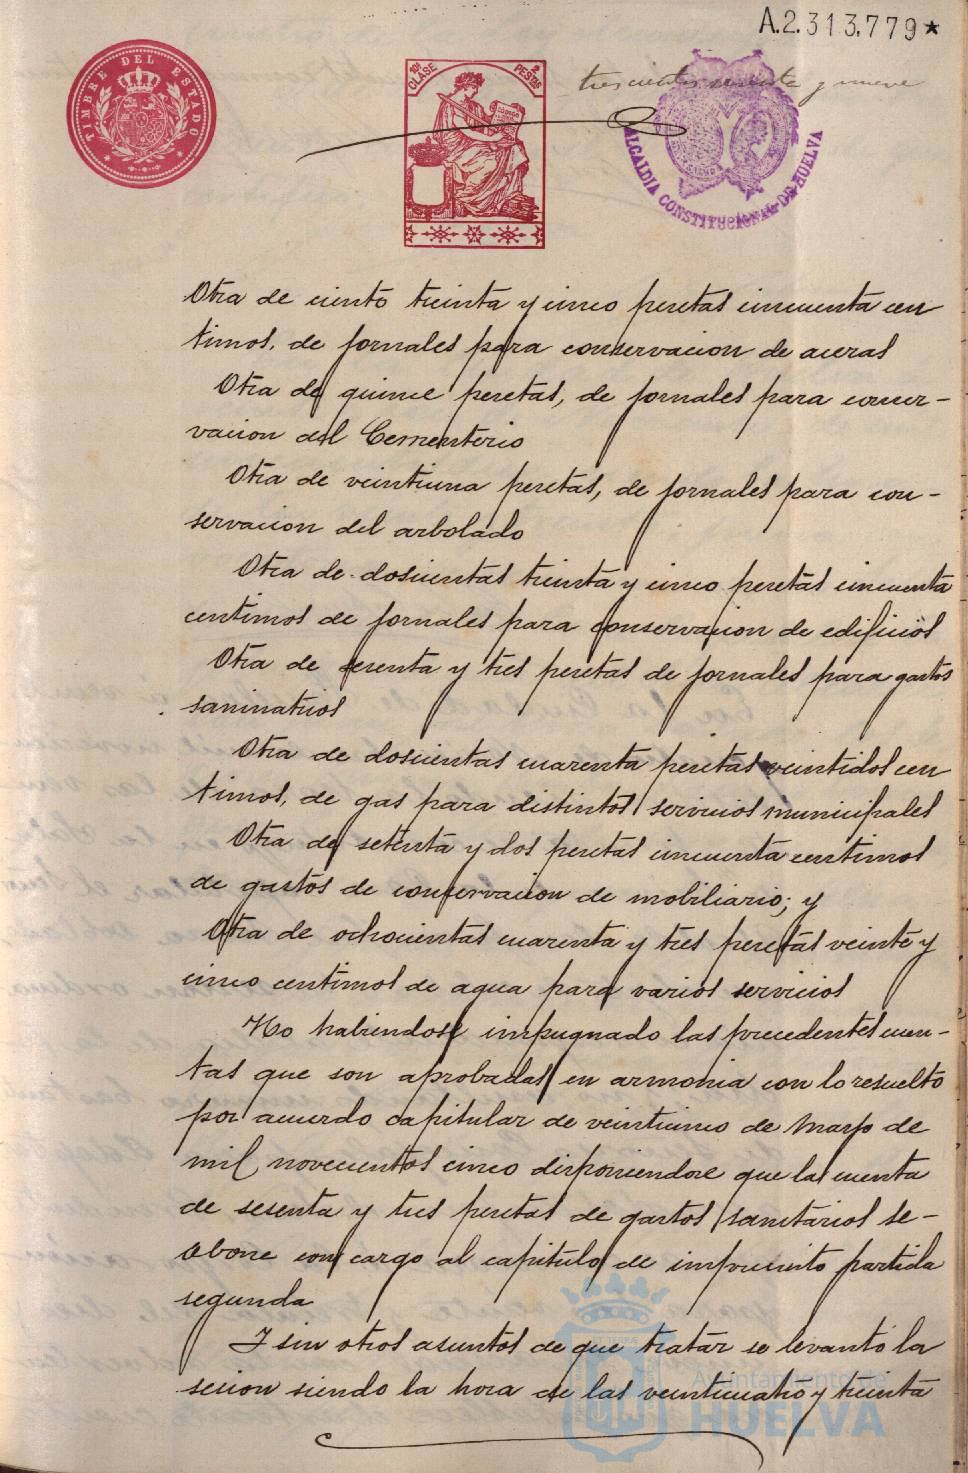 A.2.313.779★
TIMBRE DEL ESTADO
10ª CLASE
2 PESTAS
trescientos sesenta y nueve
ALCALDIA CONSTITUCIONAL DE HUELVA
Otra de ciento treinta y cinco pesetas cincuenta cen
timos, de jornales para conservacion de aceras
Otra de quince pesetas, de jornales para conser-
vacion del Cementerio
Otra de veintiuna pesetas, de jornales para con-
servacion del arbolado
Otra de doscientas treinta y cinco pesetas cincuenta
centimos de jornales para conservacion de edificios
Otra de sesenta y tres pesetas de jornales para gastos
saninatrios
Otra de doscientas cuarenta pesetas veintidos cen
timos, de gas para distintos servicios municipales
Otra de setenta y dos pesetas cincuenta centimos
de gastos de conservacion de mobiliario; y
Otra de ochocientas cuarenta y tres pesetas veinte y
cinco centimos de agua para varios servicios
No habiendose impugnado las precedentes cuen-
tas que son aprobadas en armonia con lo resuelto
por acuerdo capitular de veinticinco de Mayo de
mil novecientos cinco disponiendose que la cuenta
de sesenta y tres pesetas de gastos sanitarios se-
abone con cargo al capitulo de imprevisto partida
segunda
Y sin otros asuntos de que tratar se levantó la
sesion siendo la hora de las veinticuatro y treinta
Ayuntamiento de
HUELVA